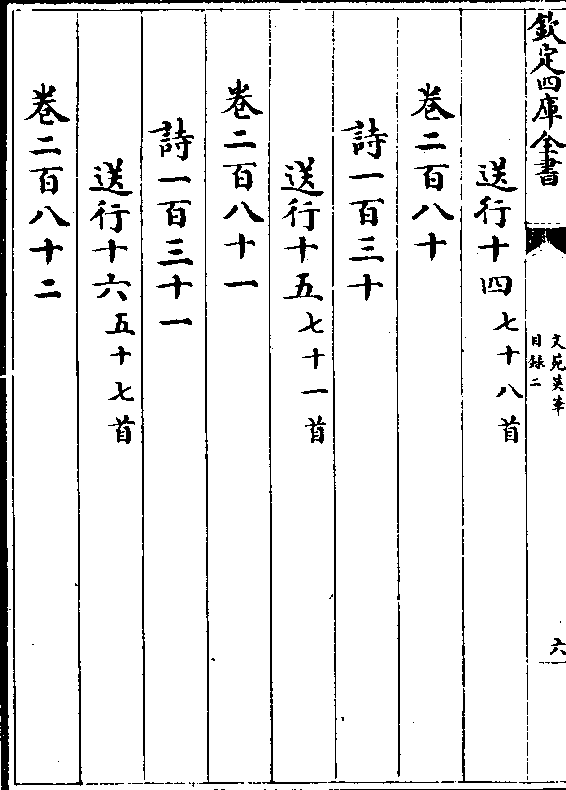 欽定四庫全書
文苑英華
目録二
六
送行十四七十八首
卷二百八十
詩一百三十
送行十五七十一首
卷二百八十一
詩一百三十一
送行十六五十七首
卷二百八十二